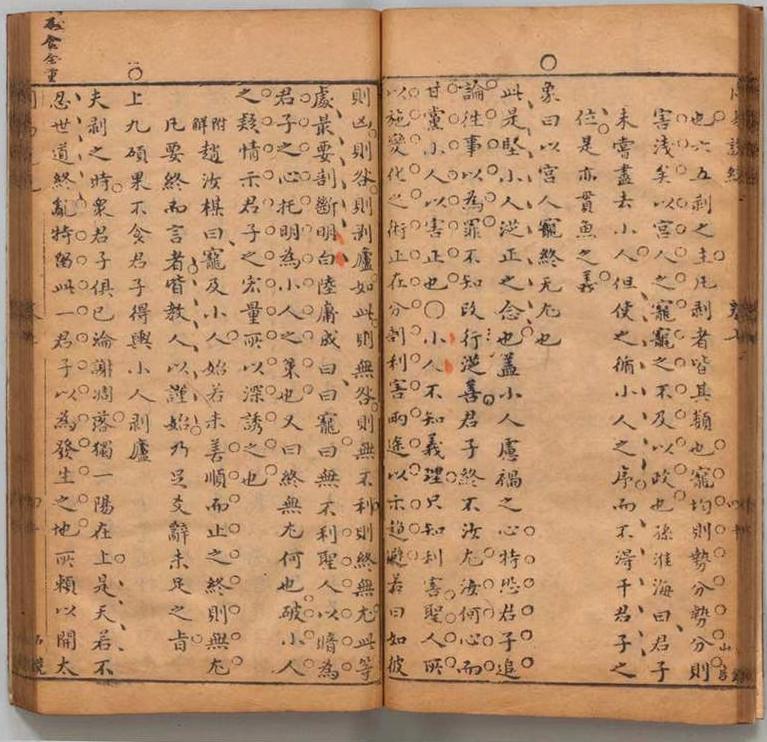 也六五剥之主凡剥者皆其類也寵均則勢分勢分則
害淺矣以宮人之寵寵之不及以政也孫淮海曰君子
未嘗盡去小人但使之循小人之序而不得干君子之
位是亦貫魚之義
象曰以宮人寵終无尤也
此是堅小人從正之念也蓋小人慮禍之心特恐君子追
論往事以為罪不知改行從善君子終不汝尤汝何心而
甘黨小人以害正也〇小人不知義理只知利害聖人所
以施變化之術正在分剖利害兩途以示趨避若曰如彼
則凶則咎則剥廬如此則無咎則無不利則終無尤此等
處最要剖斷明白陸庸成曰曰寵曰無不利聖人以瞻為
君子之心托明為小人之策也又曰終無尤何也破小人
之疑情示君子之宏量所以深誘之也
附解趙汝楳曰寵及小人始若未善順而止之終則無尤
凡要終而言者皆教人以謹始乃足爻辭未足之旨
上九碩果不食君子得輿小人剥廬
夫剥之時衆君子俱已淪謝凋落獨一陽在上是天若不
忍世道終亂特留此一君子以為發生之地所賴以開太